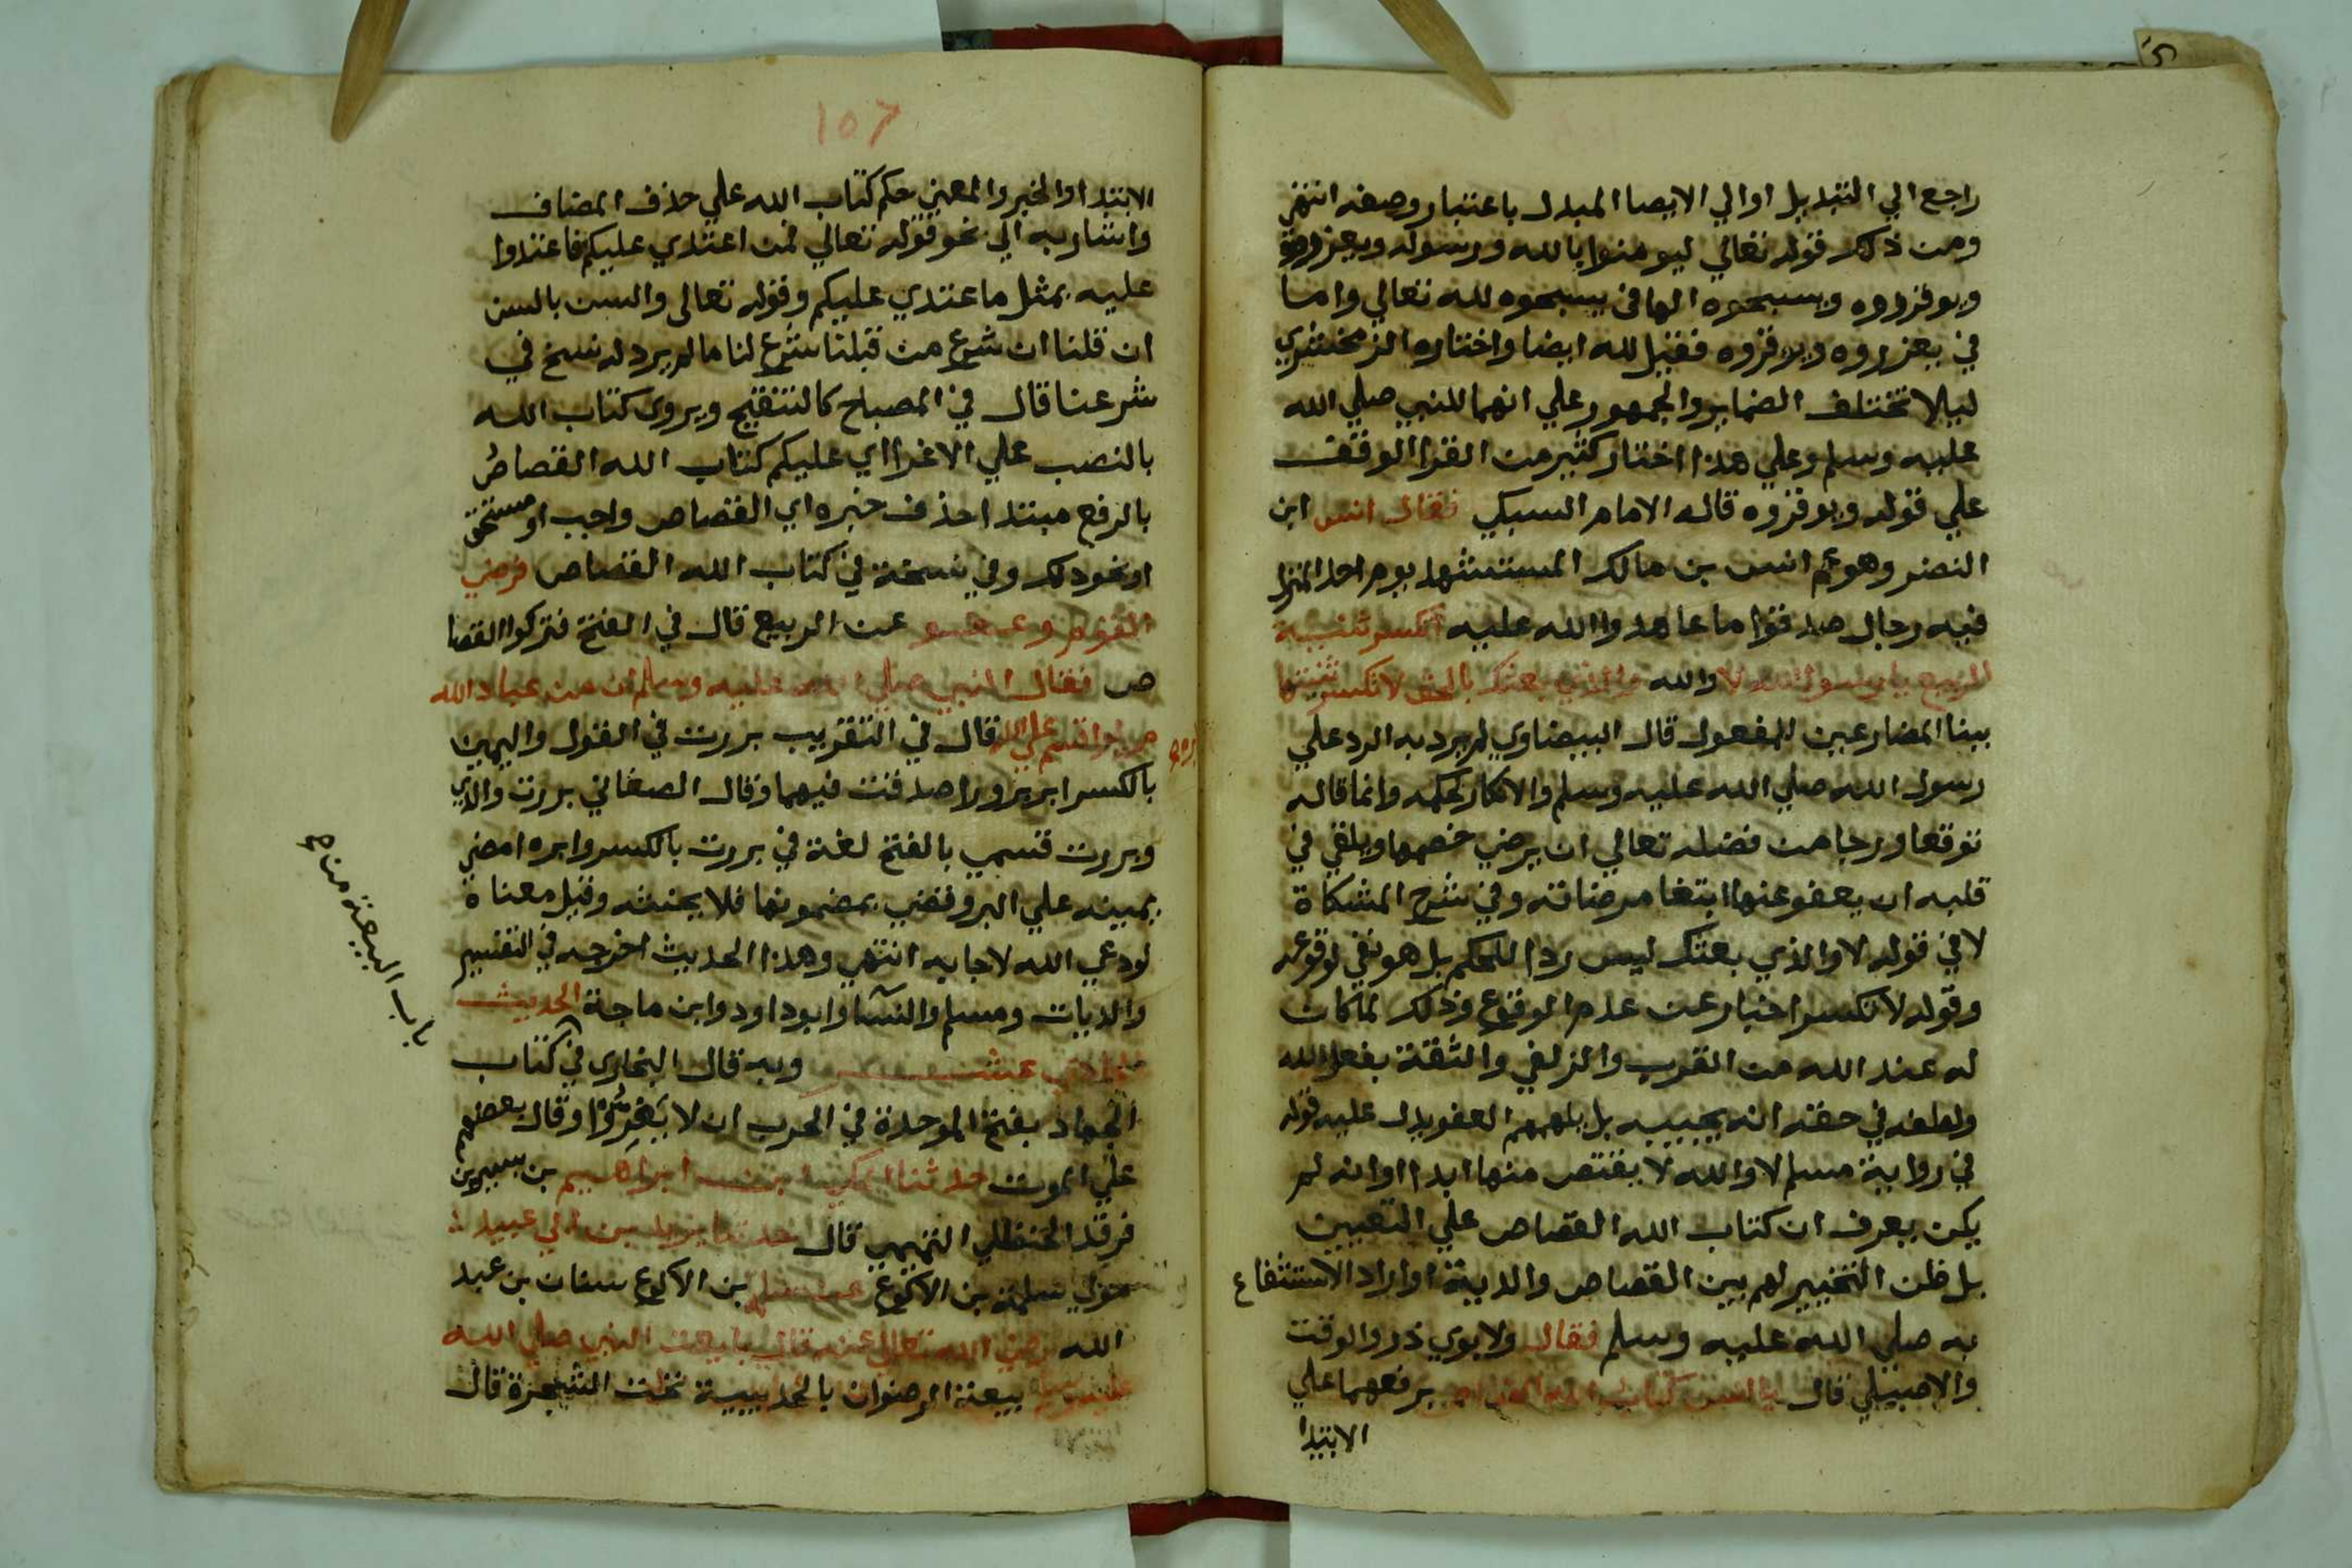 راجع الي التبديل اوالي الايصا المبدل باعتبار وصفه انتهي
ومن ذلك قوله تعالي ليومنوا بالله ورسوله ويعزروه
ويوقروه ويسبحوه الها في يسبحوه لله تعالي واما
في يعزروه ويوقروه فقيل لله ايضا واختاره الزمخشري
ليلا تختلف الضماير والجمهور علي انهما للنبي صلي الله
عليه وسلم وعلي هذا اختار كثير من القرا الوقف
علي قوله ويوقروه قاله الامام السبكي فقال انس ابن
النضر وهو عم انس بن مالك المستشهد يوم احد المنزل
فيه رجال صدقوا ما عاهدوا الله عليه اتكسر ثنية
الربيع يا رسول الله لا والله والذي بعثك بالحق لا تكسر ثنيتها
ببنا المضارعين للمفعول قال البيضاوي لم يرد به الرد علي
رسول الله صلي الله عليه وسلم والانكار لحكمه وانما قاله
توقعا ورجا من فضله تعالي ان يرضي خصمها ويلقي في
قلبه ان يعفو عنها ابتغا مرضاته وفي شرح المشكاة
لا في قوله لا والذي بعثك ليس ردا للحكم بل هو نفي لوقوعه
وقوله لا تكسر اخبار عن عدم الوقوع وذلك لما كان
له عند الله من القرب والزلفي والثقة بفعل الله
ولطفه في حقه انه يجيبه بل يلهمهم العفو يدل عليه قوله
في رواية مسلم لا والله لا يقتص منها ابدا اوانه لم
يكن يعرف ان كتاب الله القصاص علي التعيين
بل ظن التخيير لهم بين القصاص والدية اواراد الاستشفاع
به صلي الله عليه وسلم فقال ولابوي ذر والوقت
والاصيلي قال يا انس كتاب الله القصاص برفعهما علي
الابتدا
١٥٦
الابتدا والخبر والمعني حكم كتاب الله علي حذف المضاف
واشار به الي نحو قوله تعالي فمن اعتدي عليكم فاعتدوا
عليه بمثل ما اعتدي عليكم وقوله تعالي والسن بالسن
ان قلنا ان شرع من قبلنا شرع لنا ما لم يرد له نسخ في
شرعنا قال في المصباح كالتنقيح ويروي كتاب الله
بالنصب علي الاغرا اي عليكم كتاب الله القصاصُ
بالرفع مبتدا حذف خبره اي القصاص واجب او مستحق
او نحو ذلك وفي نسخة في كتاب الله القصاص فرضي
القوم وعفوا عن الربيع قال في الفتح فتركوا القصا
ص فقال النبي صلي الله عليه وسلم ان من عباد الله
من لو اقسم علي الله قال في التقريب بررت في القول واليمين
لابره
بالكسر ابر برورا صدقت فيهما وقال الصغاني بررت والدي
وبررت قسمي بالفتح لغة في بررت بالكسر وابره امضي
يمينه علي البر وقضي بمضمونها فلا يحنثه وقيل معناه
لو دعي الله لاجابه انتهي وهذا الحديث اخرجه في التفسير
والديات ومسلم والنسآ وابوداود وابن ماجة الحديث
الحادي عشر وبه قال البخاري في كتاب
الجهاد بفتح الموحدة في الحرب ان لا يَفِرُّوا وقال بعضهم
علي الموت حدثنا المكي ابن ابراهيم بن بشير بن
فرقد الحنظلي التميمي قال حدثنا يزيد بن ابي عبيد
مولي سلمة بن الاكوع عن سلمة بن الاكوع سنان بن عبد
الله رضي الله تعالي عنه قال بايعت النبي صلي الله
عليه وسلم بيعة الرضوان بالحديبية تحت الشجرة قال
باب البيعة منه